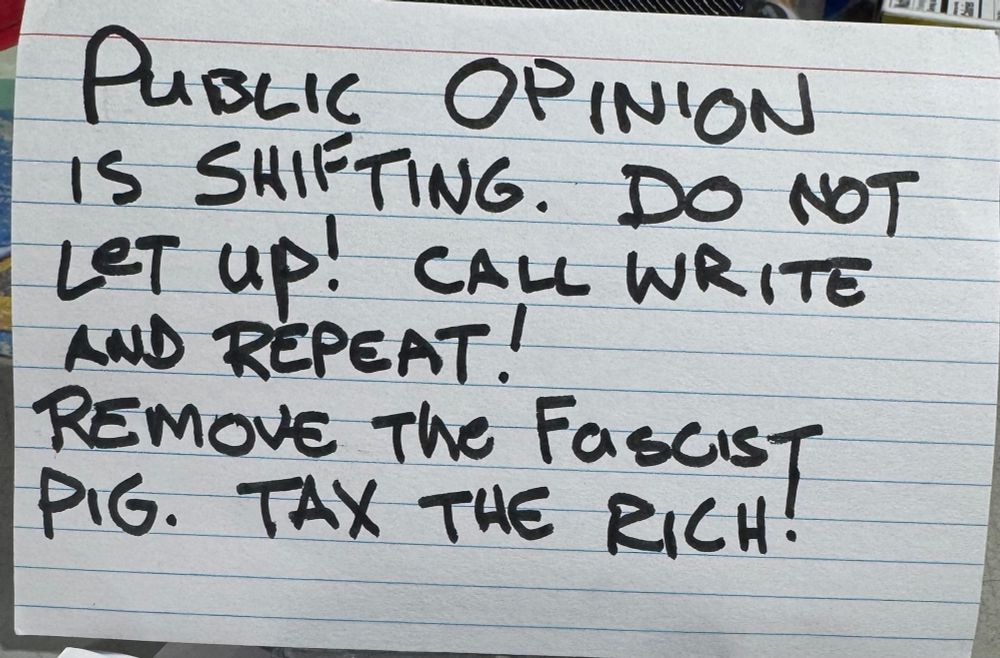 PUBLIC OPINION
IS SHIFTING. DO NOT
LET UP! CALL WRITE
AND REPEAT!
REMOVE THE FASCIST
PIG. TAX THE RICH!